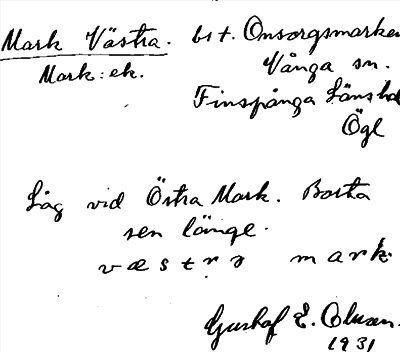 Mark Västra. bst. Omsorgsmarken
Mark: ek. Vånga sn.
Finspånga Länshd
Ögl
Låg vid Östra Mark. Borta
sen länge.
væstra mark
Gustaf E.
1931